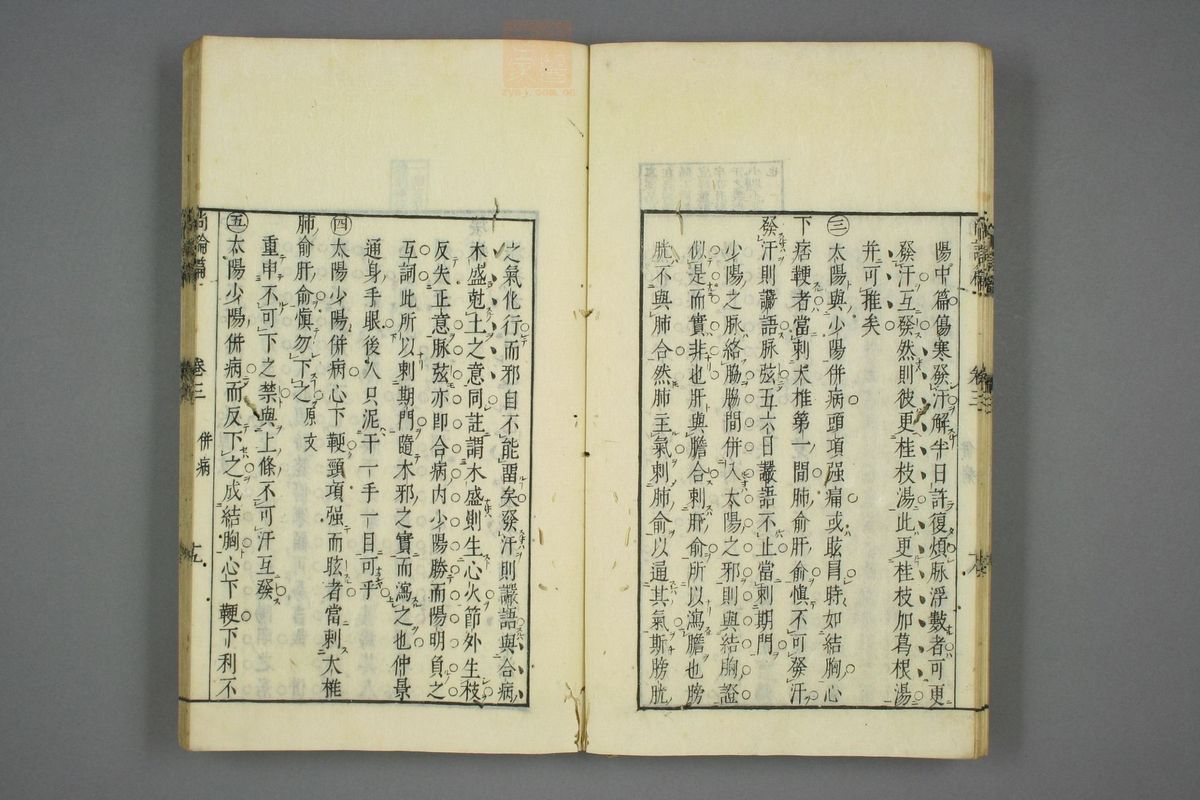 陽中篇傷寒發汗解半日許復煩脉浮數者可更
發汗互發然則彼更桂枝湯此更桂枝加葛根湯
并可推矣
三太陽與少陽併病頭項强痛或眩冒時如結胸心
下痞鞕者當刺大椎第一間肺俞肝俞慎不可發汗
發汗則讝語脉弦五六日讝語不止當刺期門
少陽之脉絡脇肋間併入太陽之邪則與結胸證
似是而實非也肝與膽合刺肝俞所以瀉膽也膀
胱不與肺合然肺主氣刺肺俞以通其氣斯膀胱
之氣化行而邪自不能留矣發汗則讝語與合病
木盛尅土之意同註謂木盛則生心火節外生枝
反失正意脉弦亦即合病内少陽勝而陽明負之
互詞此所以刺期門隨木邪之實而瀉之也仲景
通身手眼後人只泥千一手一目可乎
四太陽少陽併病心下鞕頸項强而眩者當刺大椎
肺俞肝俞慎勿下之原文
重申不可下之禁與上條不可汗互發
五太陽少陽併病而反下之成結胸心下鞕下利不
尚論篇 卷三 併病